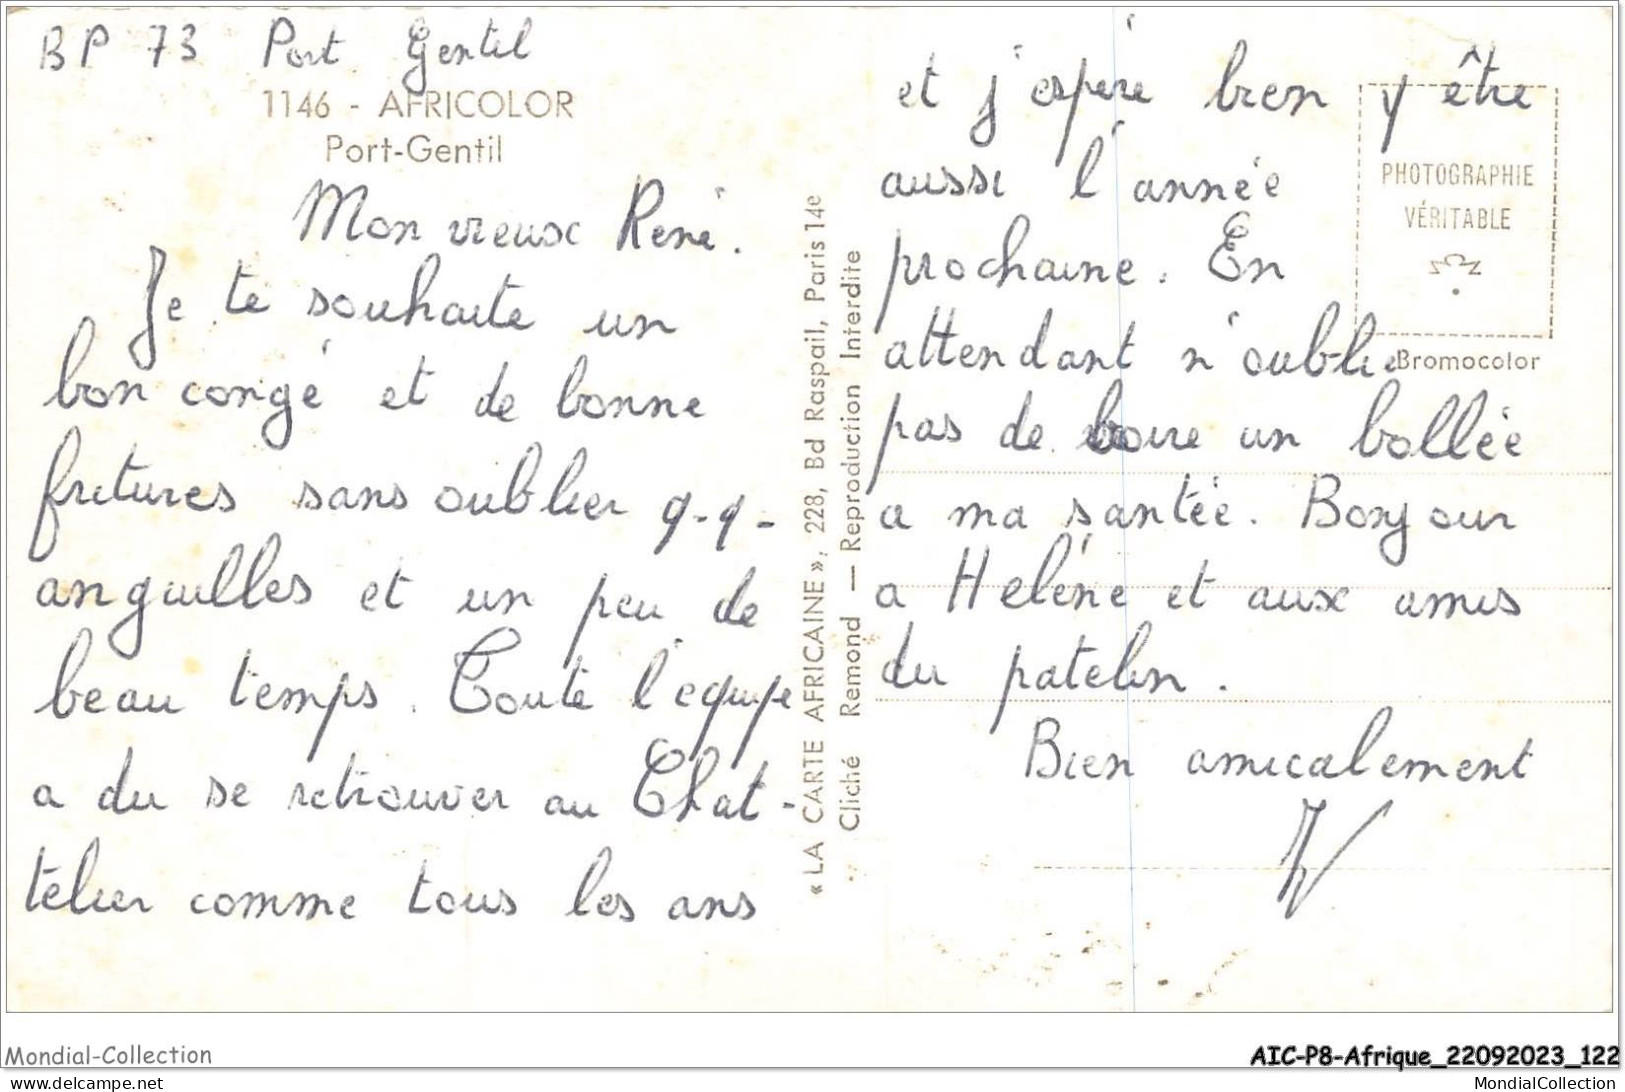 BP 73 Port Gentil
1146 - AFRICOLOR
Port-Gentil
Mon vieux René.
Je te souhaite un
bon congé et de bonne
fritures sans oublier q-q-
anguilles et un peu de
beau temps. Toute l'equipe
a du se retrouver au Chat-
telier comme tous les ans
« LA CARTE AFRICAINE », 228, Bd Raspail, Paris 14e
Cliché Remond — Reproduction Interdite
et j'espére bien y être
aussi l'année
prochaine. En
attendant n'oublie
pas de boire un bollée
a ma santée. Bonjour
a Heléne et aux amis
du patelin.
Bien amicalement
PHOTOGRAPHIE
VÉRITABLE
Bromocolor
Mondial-Collection
AIC-P8-Afrique_22092023_122
www.delcampe.net
MondialCollection